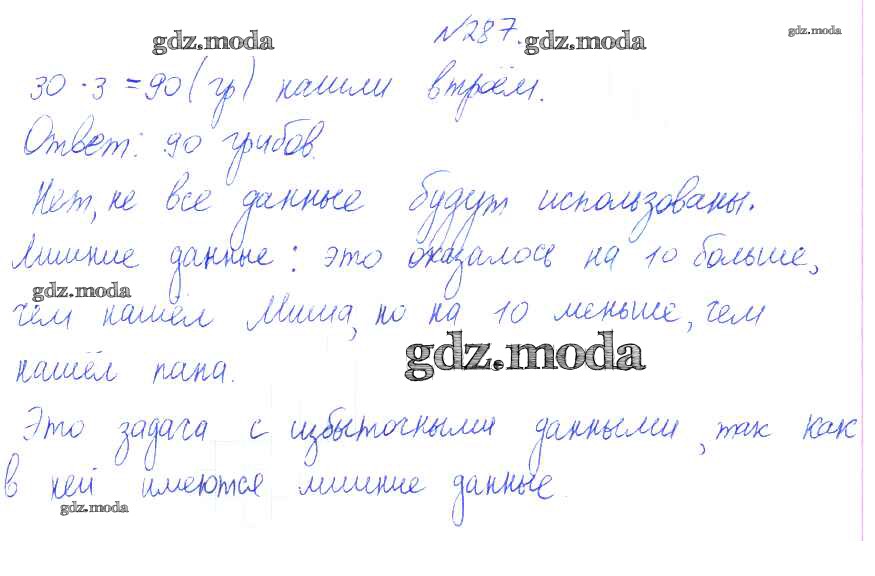 gdz.moda №287. gdz.moda gdz.moda
30 · 3 = 90 (гр) нашли втроём.
Ответ: 90 грибов.
Нет, не все данные будут использованы.
Лишние данные: это оказалось на 10 больше,
gdz.moda
чем нашёл Миша, но на 10 меньше, чем
gdz.moda
нашёл папа.
Это задача с избыточными данными, так как
в ней имеются лишние данные.
gdz.moda